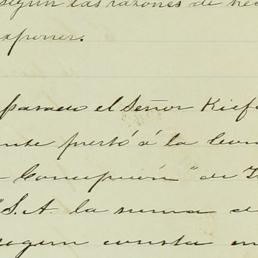 según las razones de
exponer.
pasado el Señor Kief
nte prestó á la
Concepción" de
"S. A. la suma de
según consta en